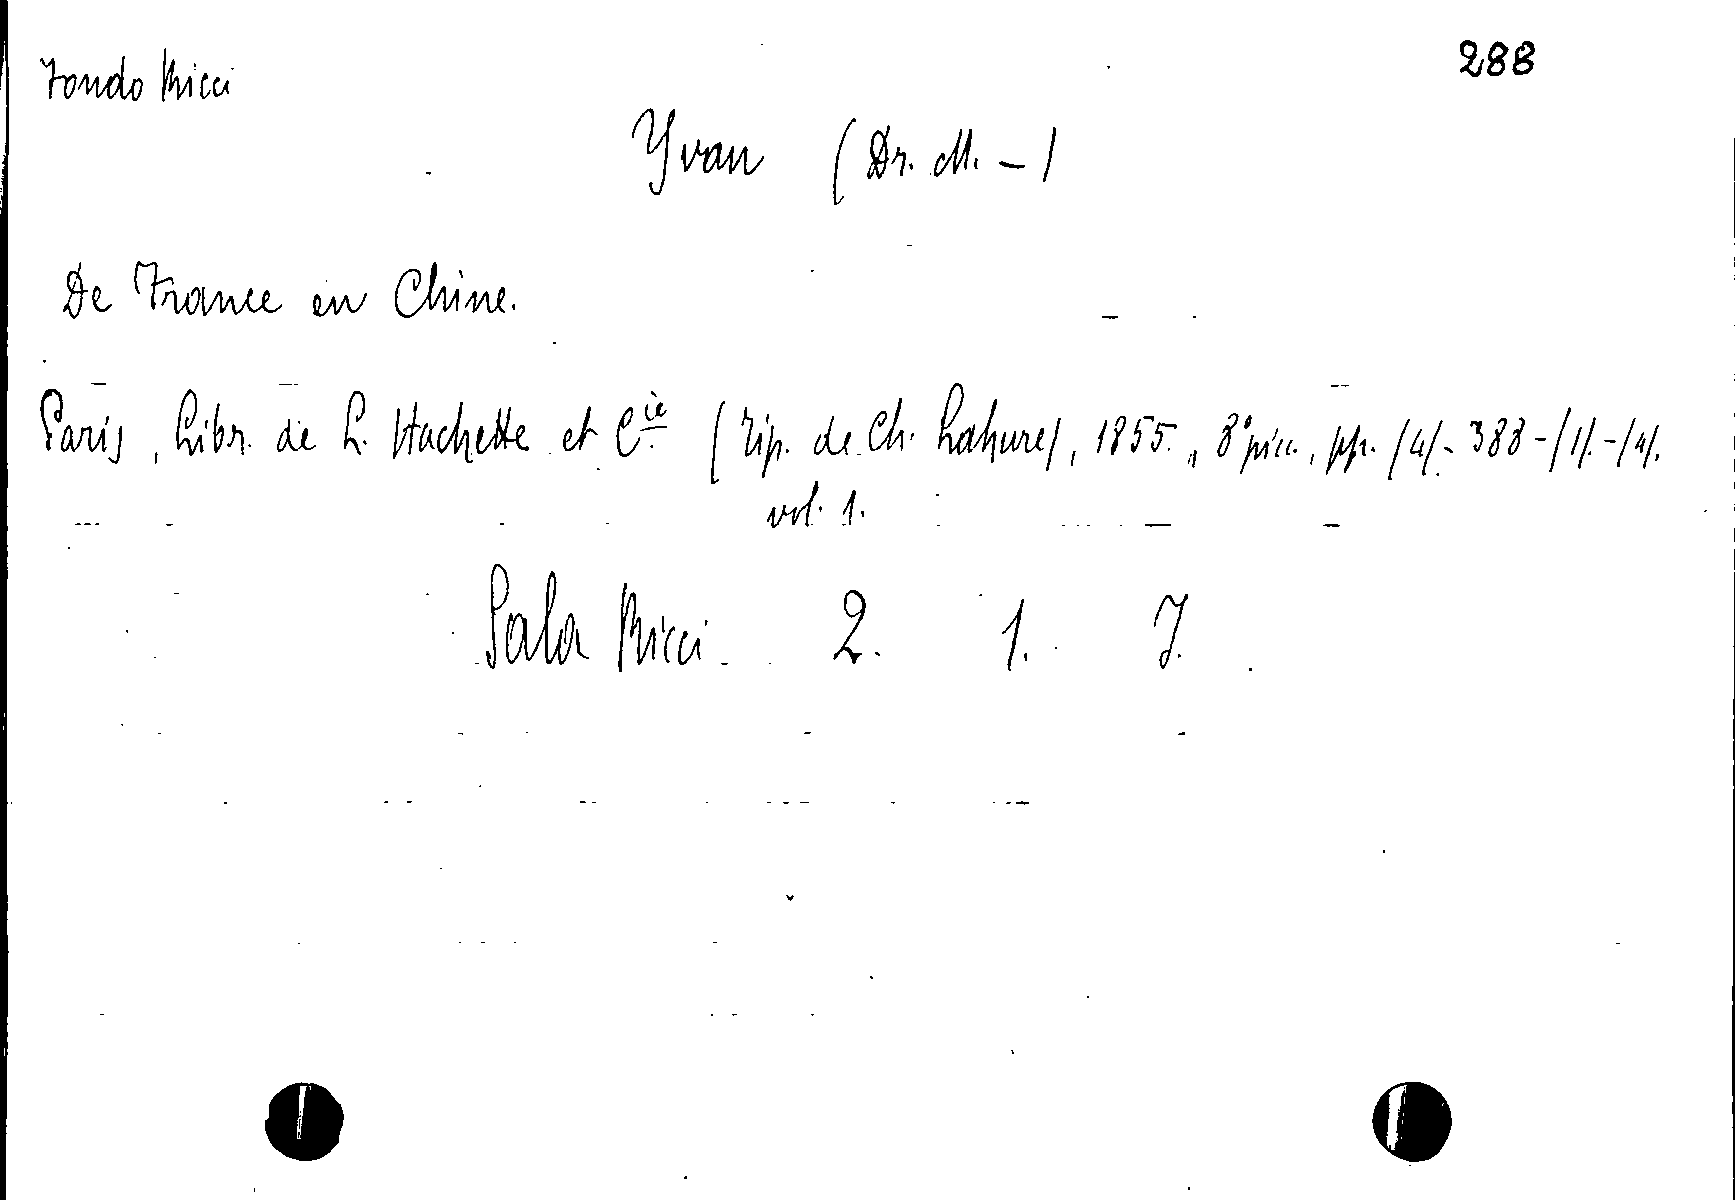 Fondo Ricci
288
Yvan (Dr. M. -)
De France en Chine.
Paris, Libr. de L. Hachette et Cie (Tip. de Ch. Lahure), 1855., 8° picc., pp. /4/- 388 -/1/.-/4/.
vol. 1.
Sala Ricci 2. 1. 7.